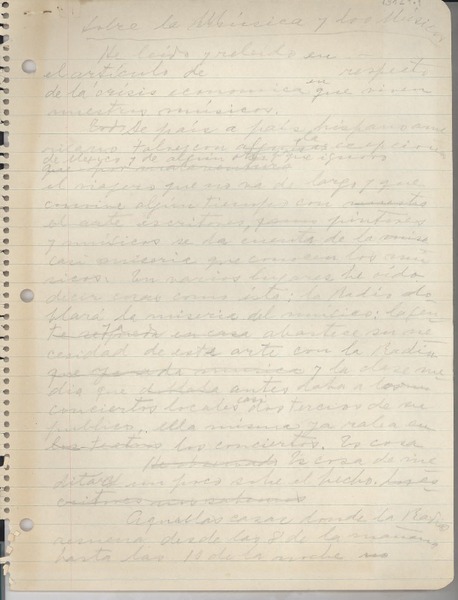 Sobre la Música y los Músicos
He leído y releído en
el artículo de respecto
de la crisis economica en que viven
nuestros músicos.
de país a país hispanoame
ricano tal vez con la excepcion
de Mexico y de algun otro que ignoro
el viajero que no va de largo, y que
convive algun tiempo con
el arte escritores, pintores
y musicos se da cuenta de la
casi miseria que conocen los mú
sicos. En varios lugares he oido
decir cosas como ésto: la Radio do
blará la miseria del musico: la jen
te en casa abastece su ne
cesidad de este arte con la Radio
y la clase me
dia que antes daba a los
conciertos locales casi dos tercios de su
publico, ella misma ya ralea en
los conciertos. Es cosa
Es cosa de me
ditar un poco sobre el hecho.
Aquellas casas donde la Radio
suena desde las 8 de la mañana
hasta las 10 de la noche